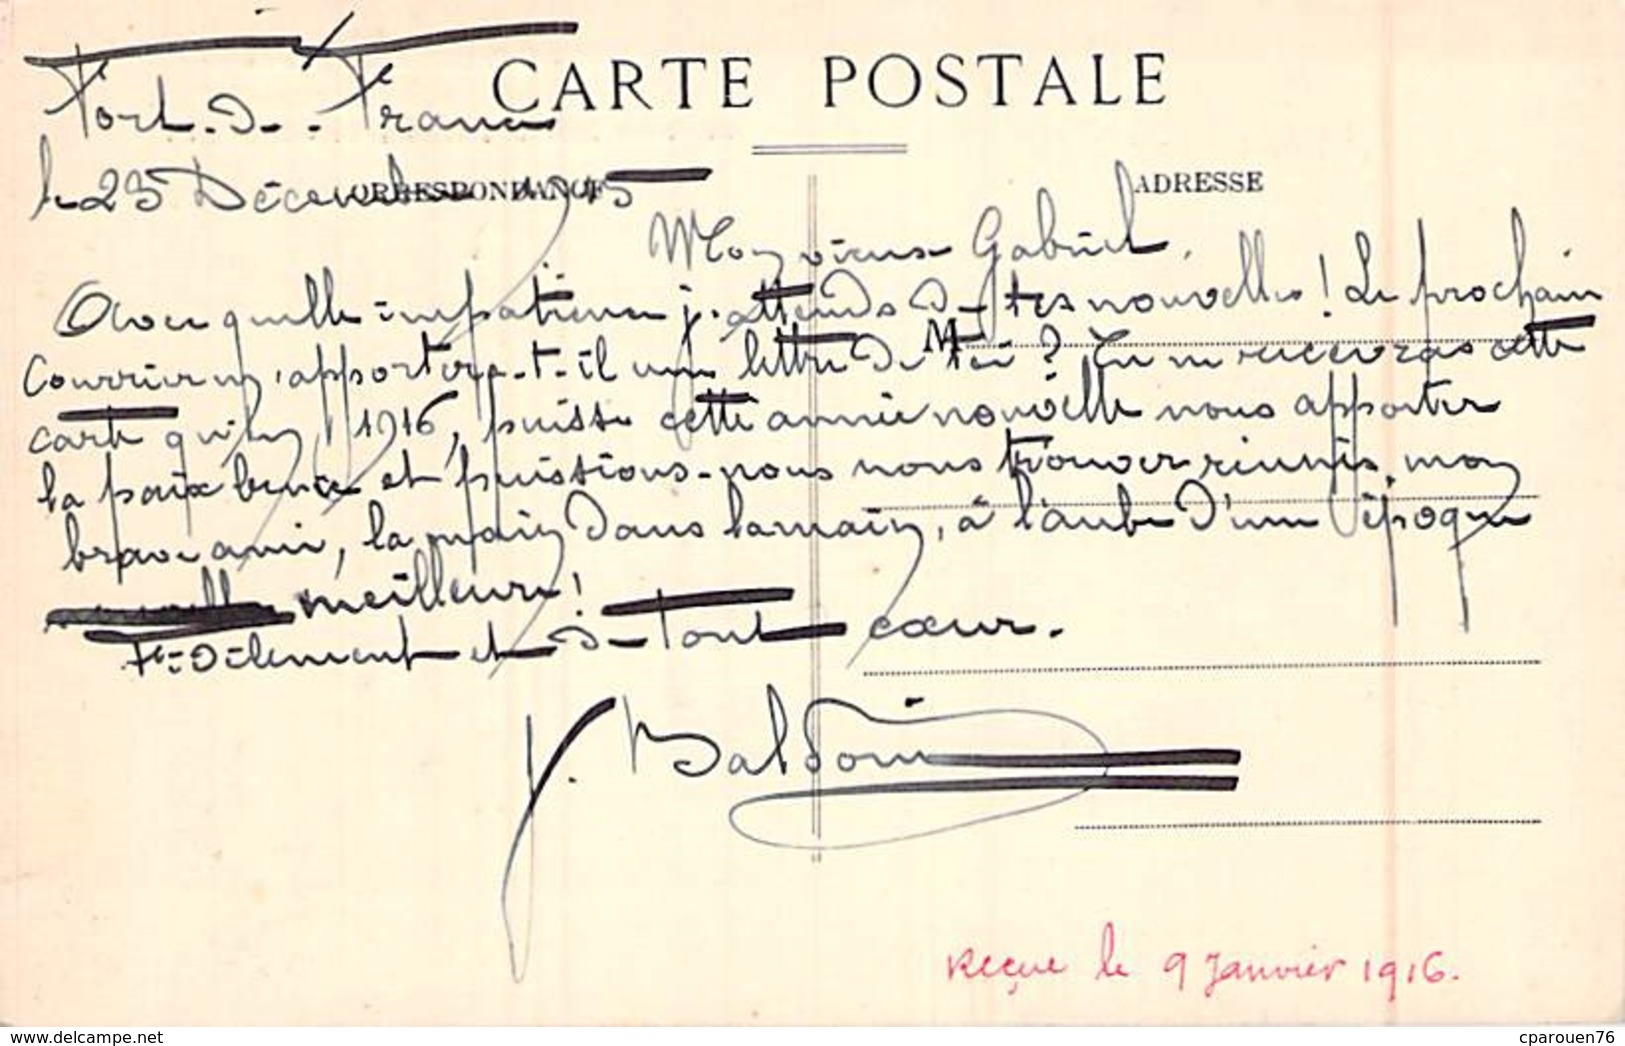 CARTE POSTALE
Fort-de-France
le 23 Décembre 1915
CORRESPONDANCE
ADRESSE
Mon vieux Gabriel,
Avec quelle impatience j'attends de tes nouvelles ! Le prochain
M
courrier m'apportera-t-il une lettre de toi ? Tu ne recevras cette
carte qu'en 1916, puisse cette année nouvelle nous apporter
la paix bénie et puissions-nous nous trouver réunis, mon
brave ami, la main dans la main, à l'aube d'une époque
meilleure !
Fidèlement et de tout cœur.
J. Baldoni
Reçue le 9 Janvier 1916.
www.delcampe.net
cparouen76